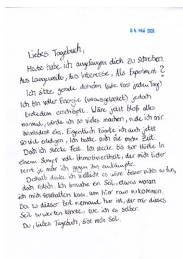 04. Mai 2020
Liebes Tagebuch,
Heute habe ich angefangen dich zu schreiben.
Aus Langeweile, Aus Interesse, Als Experiment?
Ich sitze gerade daheim (wie fast jeden Tag)
Ich bin voller Energie (unausgelastet) jedoch
trotzdem erschöpft. Wäre jetzt bloß alles
normal, würde ich so vieles machen, rede ich mir
zumindest ein. Eigentlich könnte ich auch jetzt
so viel erledigen, ich hätte auch die Zeit
Doch ich stecke fest. Ich stecke bis zur Hüfte in
einem Sumpf voll Unmotiviertheit, der mich tiefer
je mehr ich gegen ihn ankämpfe.
Deshalb denke ich vielleicht es wäre besser nichts zu tun,
doch falsch. Ich brauche ein Seil, etwas woran
ich mich festhalten kann, um hier raus zu kommen.
Da in dieser Zeit niemand hier ist, der mir dieses
Seil zuwerfen könnte, tue ich es selber.
Du, liebes Tagebuch, bist mein Seil.